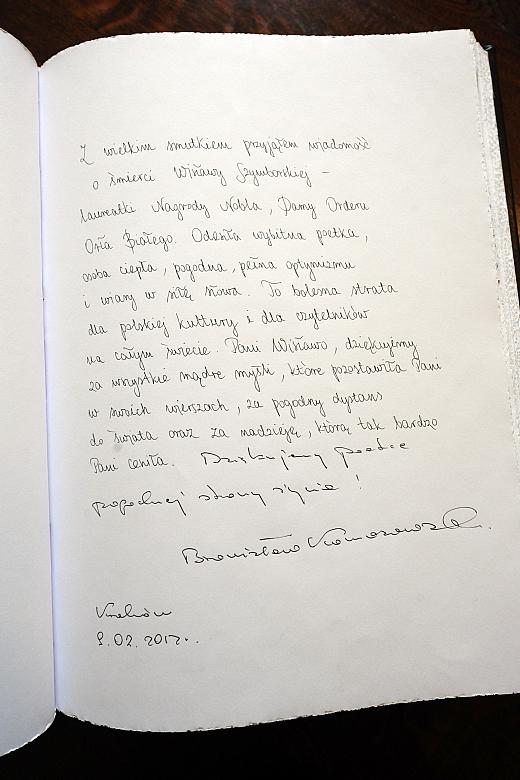 Z wielkim smutkiem przyjąłem wiadomość
o śmierci Wisławy Szymborskiej –
laureatki Nagrody Nobla, Damy Orderu
Orła Białego. Odeszła wybitna poetka,
osoba ciepła, pogodna, pełna optymizmu
i wiary w siłę słowa. To bolesna strata
dla polskiej kultury i dla czytelników
na całym świecie. Pani Wisławo, dziękujemy
za wszystkie mądre myśli, które pozostawiła Pani
w swoich wierszach, za pogodny dystans
do świata oraz za nadzieję, którą tak bardzo
Pani ceniła. Dziękujemy poetce
pogodnej strony życia!
Bronisław Komorowski.
Kraków
9.02.2012r.